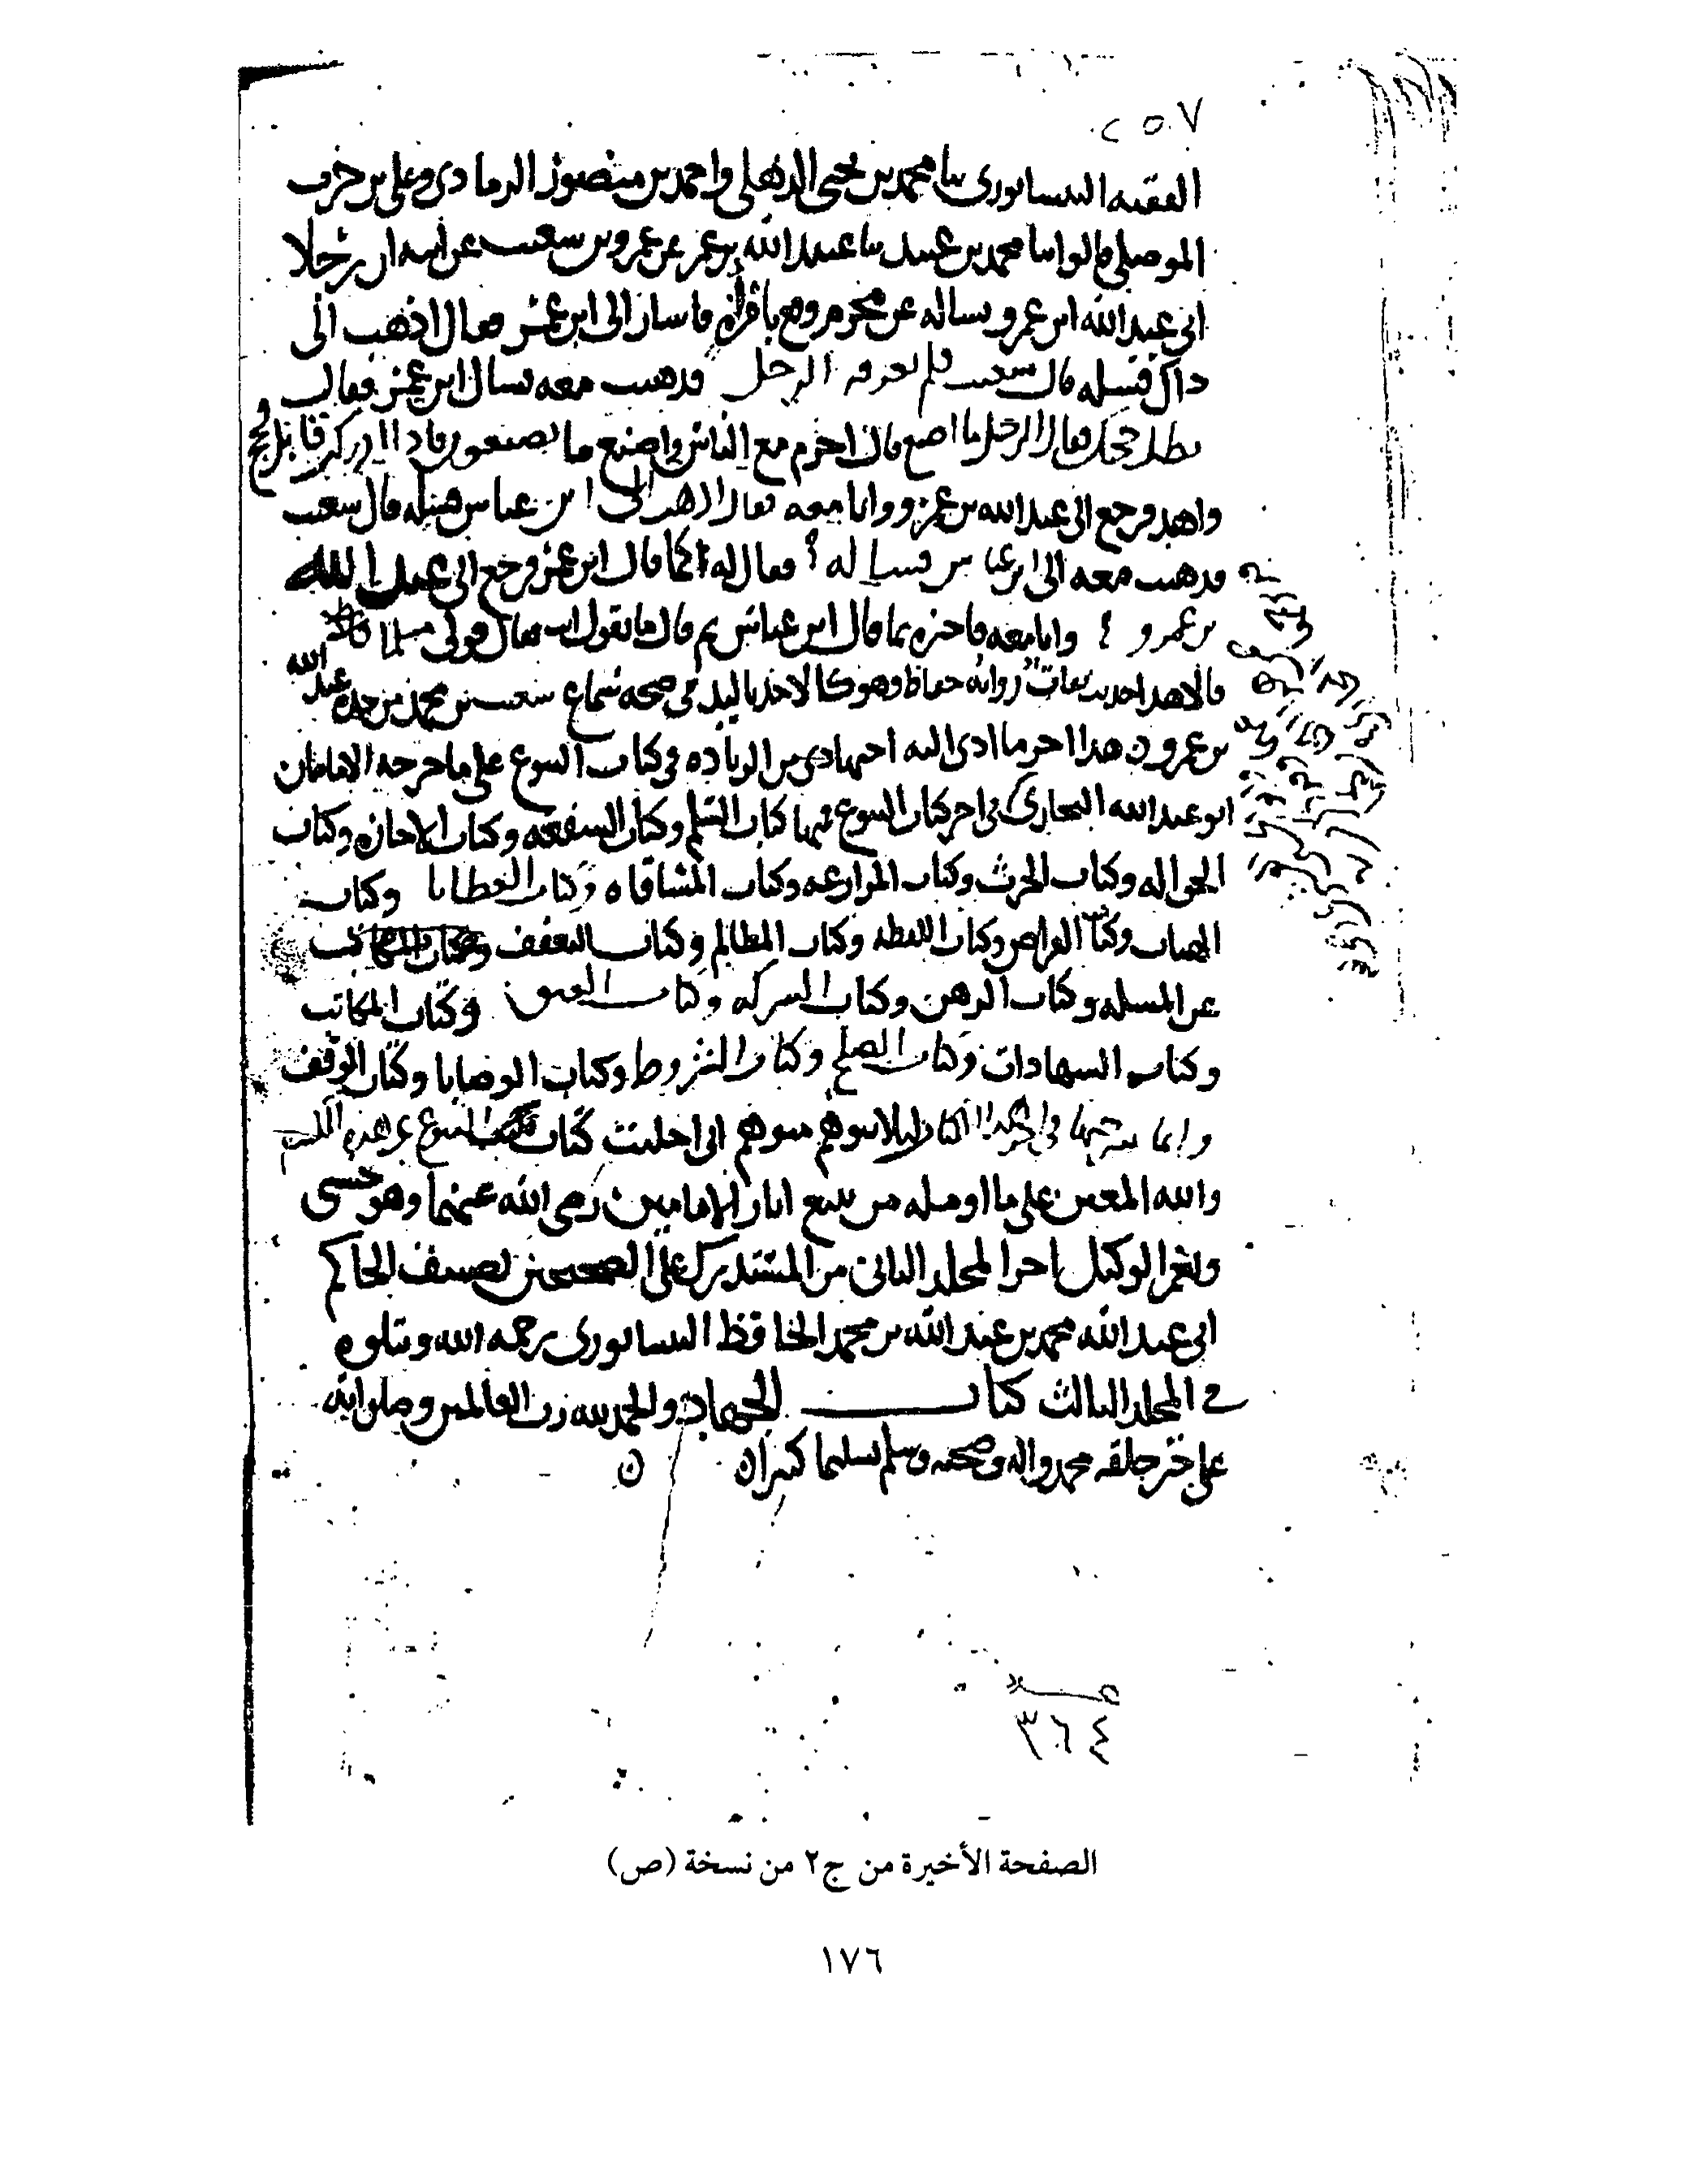 ٢٥٧
الفقيه النيسابوري ثنا محمد بن يحيى الذهلي واحمد بن منصور الرمادي وعلي بن حرب
الموصلي قالوا ثنا محمد بن عبيد ثنا عبيد الله بن عمر عن عمرو بن شعيب عن ابيه ان رجلا
اتى عبد الله ابن عمرو يساله عن محرم وقع بامراة فاشار الى ابن عمر فقال اذهب الى
ذاك فسله قال شعيب فلم يعرفه الرجل فذهبت معه فسال ابن عمر فقال
بطل حجك فقال الرجل ما اصنع قال احرم مع الناس واصنع ما يصنعون فاذا ادركت قابل فحج
واهد فرجع الى عبد الله بن عمرو وانا معه فقال اذهب الى ابن عباس فسله قال شعيب
فذهبت معه الى ابن عباس فساله فقال له كما قال ابن عمر فرجع الى عبد الله
بن عمرو وانا معه فاخبره بما قال ابن عباس ثم قال ما تقول انت فقال قولي مثل ما
قالا هذا حديث ثقات رواته حفاظ وهو كالاخذ باليد في صحة سماع شعيب بن محمد من جده عبد الله
بن عمرو هذا اخر ما ادى اليه اجتهادي من الزيادة في كتاب البيوع على ما خرجه الامامان
ابو عبد الله البخاري في اخر كتاب البيوع فيها كتاب السلم وكتاب الشفعة وكتاب الاجارة وكتاب
الحوالة وكتاب الحرث وكتاب المزارعة وكتاب المساقاة وكتاب العطايا وكتاب
الهبات وكتاب القراض وكتاب اللقطة وكتاب المظالم وكتاب التعفف
عن المسلة وكتاب الرهن وكتاب الشركة وكتاب العتق وكتاب المكاتب
وكتاب الشهادات وكتاب الصلح وكتاب الشروط وكتاب الوصايا وكتاب الوقف
وانما في اخر الكتاب ليلا يتوهم متوهم اني اخليت كتاب البيوع عن هذه الكتب
والله المعين على ما اومله من تتبع اثار الامامين رضي الله عنهما وهو حسبي
ونعم الوكيل اخر المجلد الثاني من المستدرك على الصحيحين تصنيف الحاكم
ابي عبد الله محمد بن عبد الله بن محمد الحافظ النيسابوري رحمه الله ويتلوه
في المجلد الثالث كتاب الجهاد والحمد لله رب العالمين وصلى الله
على خير خلقه محمد واله وصحبه وسلم تسليما كثيرا
٣٦٤
الصفحة الأخيرة من ج٢ من نسخة (ص)
١٧٦